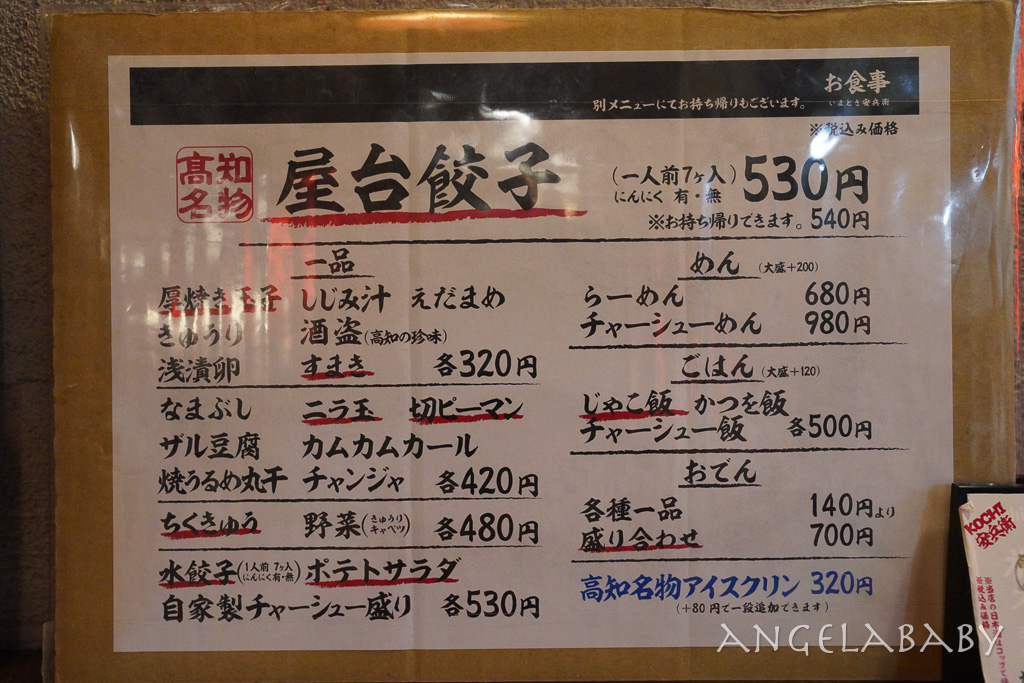 お食事
いまとき安兵衛
別メニューにてお持ち帰りもございます。
※税込み価格
高知名物
屋台餃子
(一人前7ヶ入) 530円
にんにく 有・無
※お持ち帰りできます。540円
一品
厚焼き玉子 しじみ汁 えだまめ
きゅうり 酒盗(高知の珍味)
浅漬卵 すまき 各320円
なまぶし ニラ玉 切ピーマン
ザル豆腐 カムカムカール
焼うるめ丸干 チャンジャ 各420円
ちくきゅう 野菜(きゅうり キャベツ) 各480円
水餃子(1人前 7ヶ入 にんにく有・無) ポテトサラダ
自家製チャーシュー盛り 各530円
めん (大盛+200)
らーめん 680円
チャーシューめん 980円
ごはん (大盛+120)
じゃこ飯 かつを飯
チャーシュー飯 各500円
おでん
各種一品 140円より
盛り合わせ 700円
高知名物アイスクリン 320円
(+80円で一段追加できます)
KOCHI
安兵衛
※当店の日本
※税込み価格
ANGELABABY